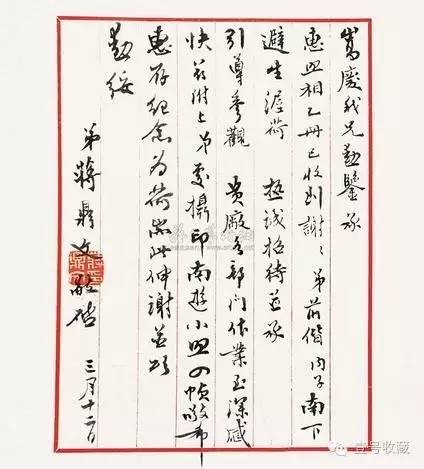 嵩慶我兄勛鑒承
惠照相乙冊已收到謝謝弟前偕內子南下
避生渥荷 極誠招待並承
引導參觀 貴廠各部門作業至深感
快茲附上弟處攝印南遊小照四幀敬希
惠存紀念為荷耑此伸謝並頌
勛綏
弟蔣鼎文敬啓
三月十二日
壹号收藏